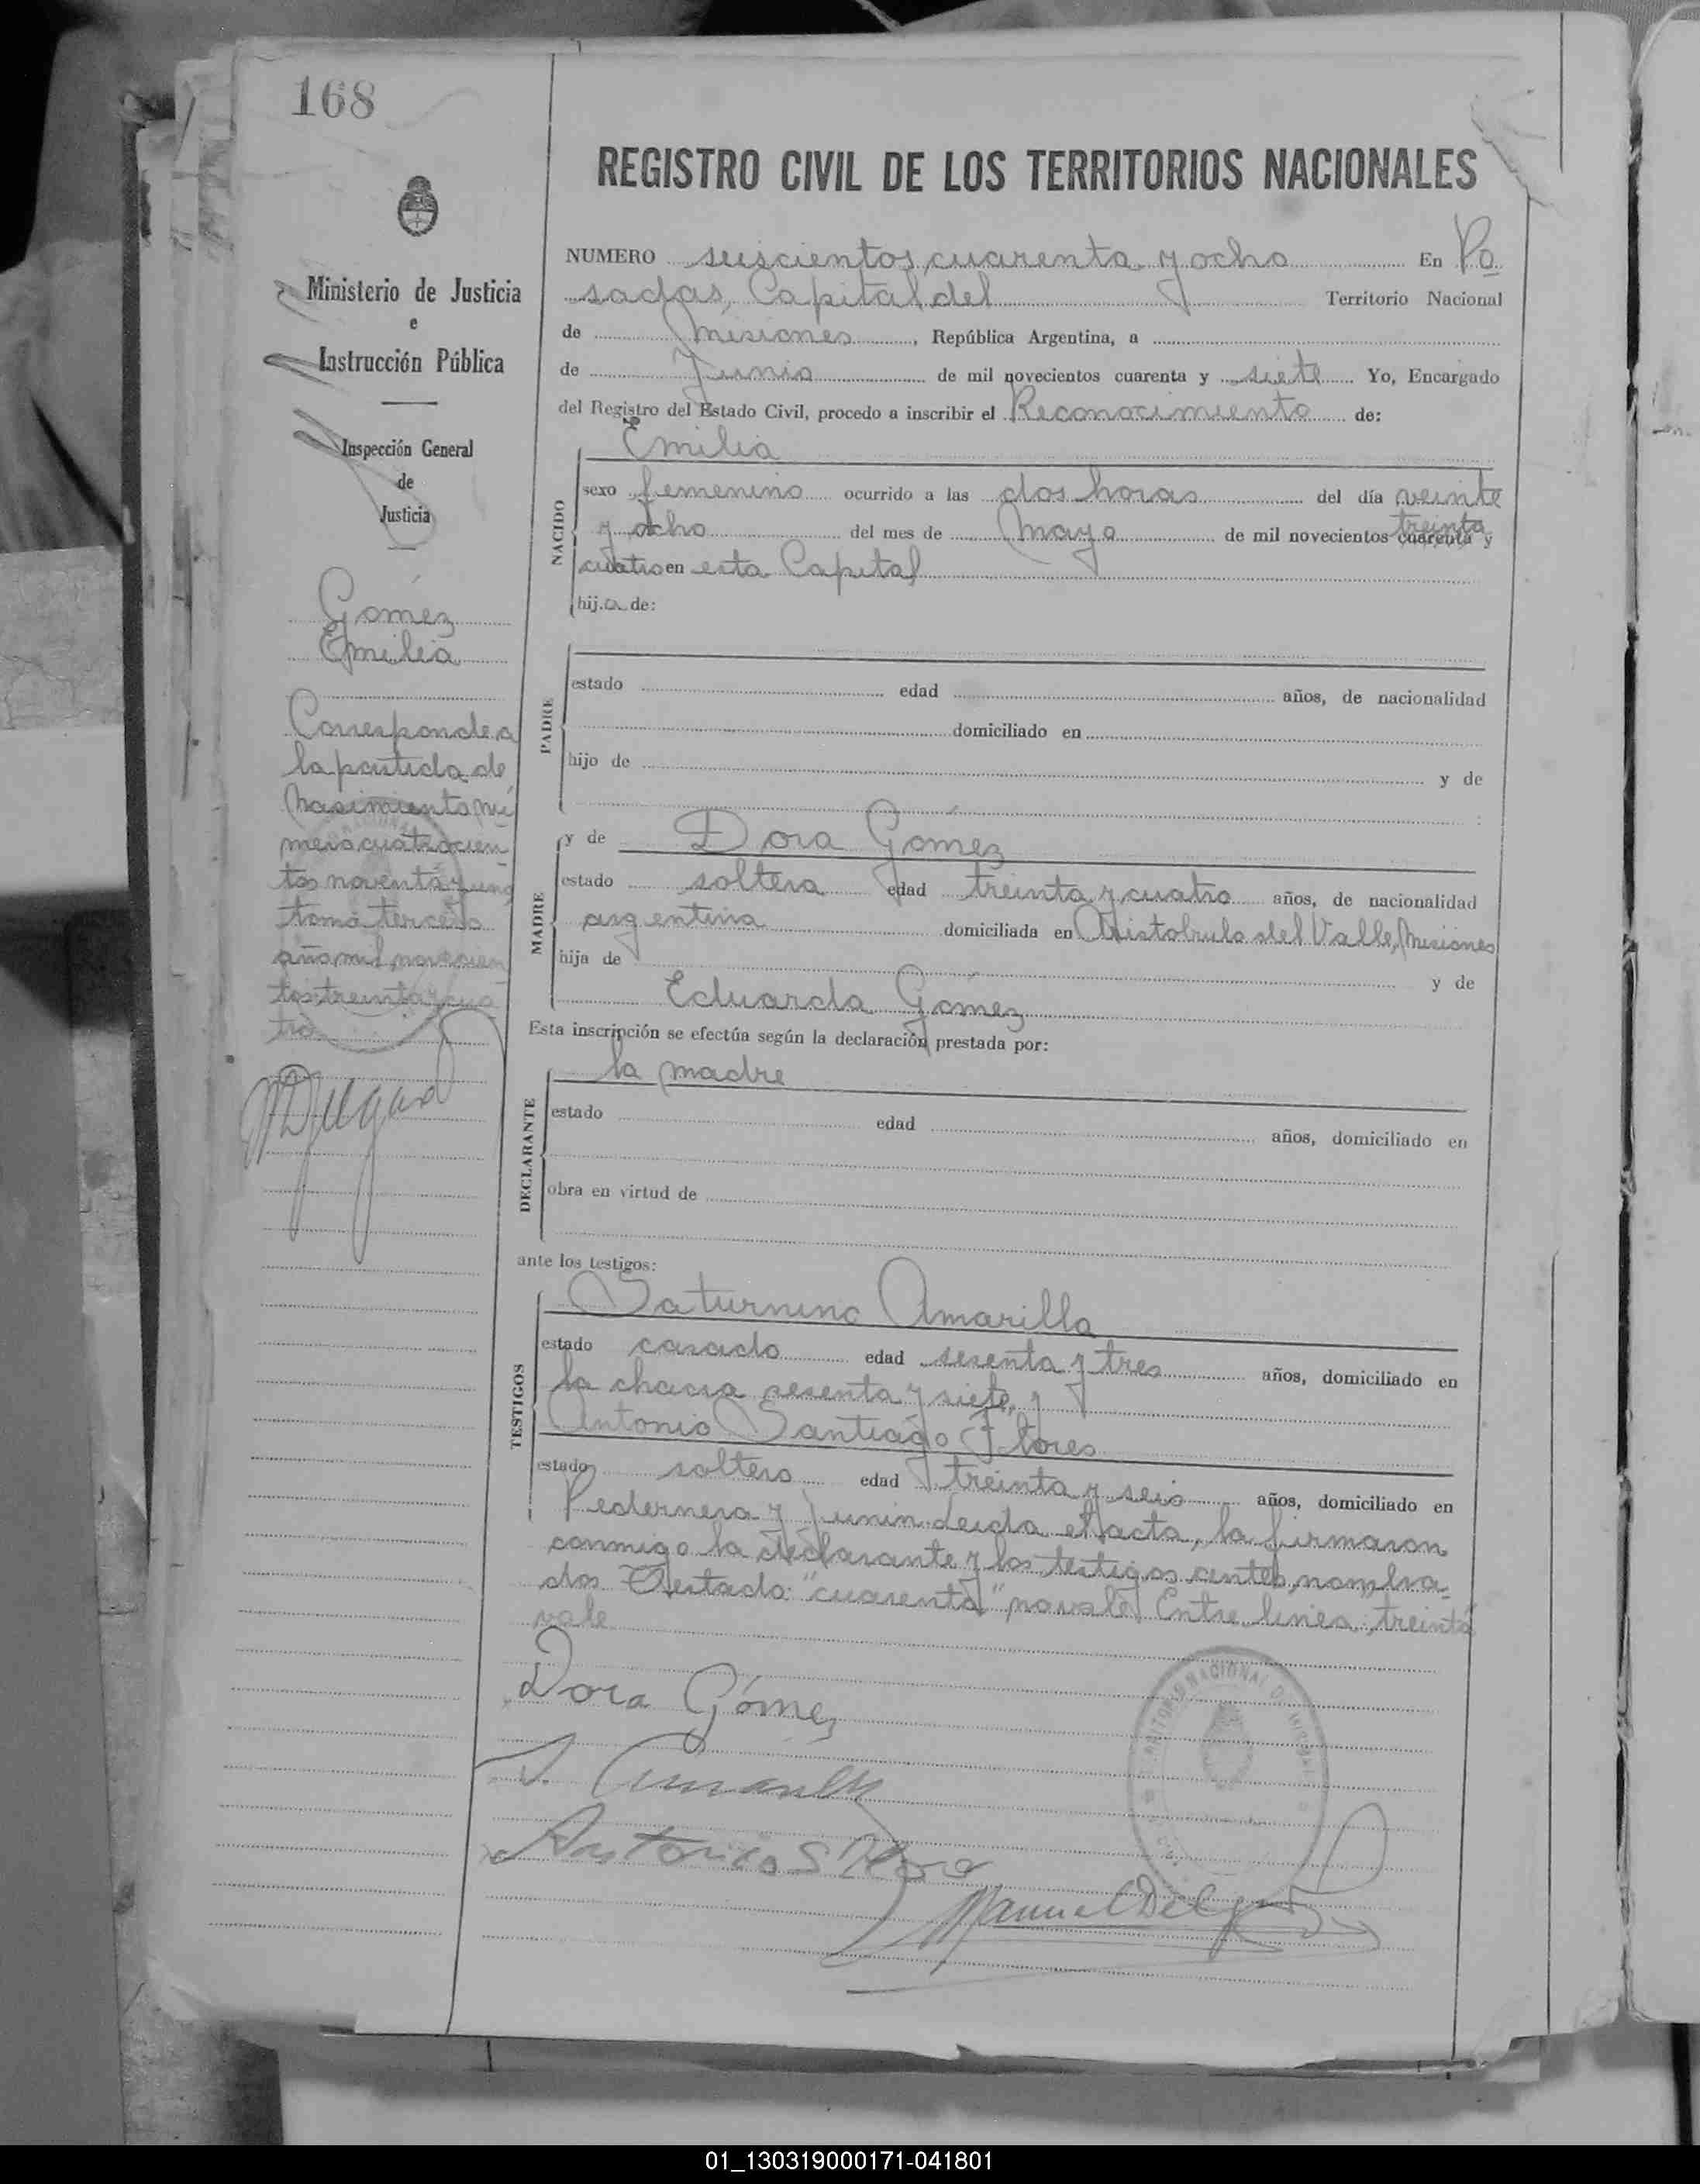 168
REGISTRO CIVIL DE LOS TERRITORIOS NACIONALES
Ministerio de Justicia
e
Instrucción Pública
Inspección General
de
Justicia
Gomez
Emilia
Corresponde a
la partida de
Nacimiento nú
mero cuatrocien
tos noventa y uno
tomo tercero
año mil novecien
tos treinta y cua
tro
NUMERO seiscientos cuarenta y ocho En Po
sadas, Capital del Territorio Nacional
de Misiones, República Argentina, a
de Junio de mil novecientos cuarenta y siete Yo, Encargado
del Registro del Estado Civil, procedo a inscribir el Reconocimiento de:
Emilia
NACIDO
sexo femenino ocurrido a las dos horas del día veinte
y ocho del mes de Mayo de mil novecientos treinta cuarenta y
cuatro en esta Capital
hija de:
PADRE
estado edad años, de nacionalidad
domiciliado en
hijo de y de
:
MADRE
y de Dora Gomez
estado soltera edad treinta y cuatro años, de nacionalidad
argentina domiciliada en Aristobulo del Valle, Misiones
hija de y de
Eduarda Gomez
Esta inscripción se efectúa según la declaración prestada por:
la madre
DECLARANTE
estado edad años, domiciliado en
obra en virtud de
ante los testigos:
TESTIGOS
Saturnino Amarilla
estado casado edad sesenta y tres años, domiciliado en
la chacra sesenta y siete, y
Antonio Santiago Flores
estado soltero edad treinta y seis años, domiciliado en
Pedernera y Junin. Leida el acta, la firmaron
conmigo la declarante y los testigos antes nombra
dos Testado: "cuarenta" no vale Entre linea: treinta
vale
Dora Gómez
Antonio S Flores
Manuel Delgado
01_130319000171-041801